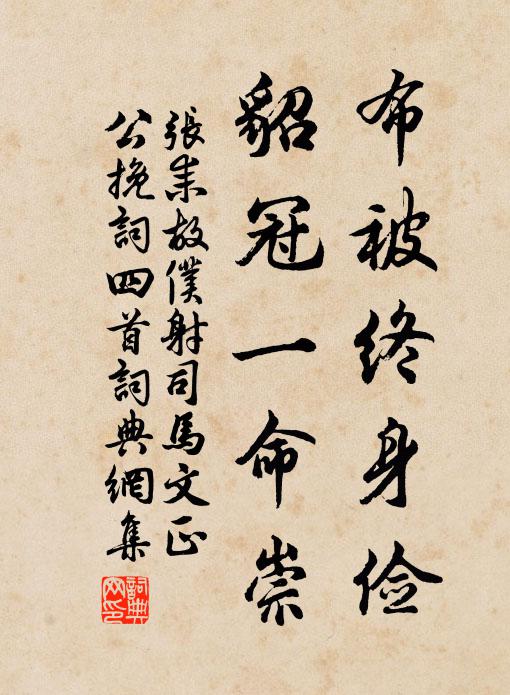 布被终身俭
貂冠一命崇
張耒故僕射司馬文正
公挽詞四首詞典網集
詞典網印